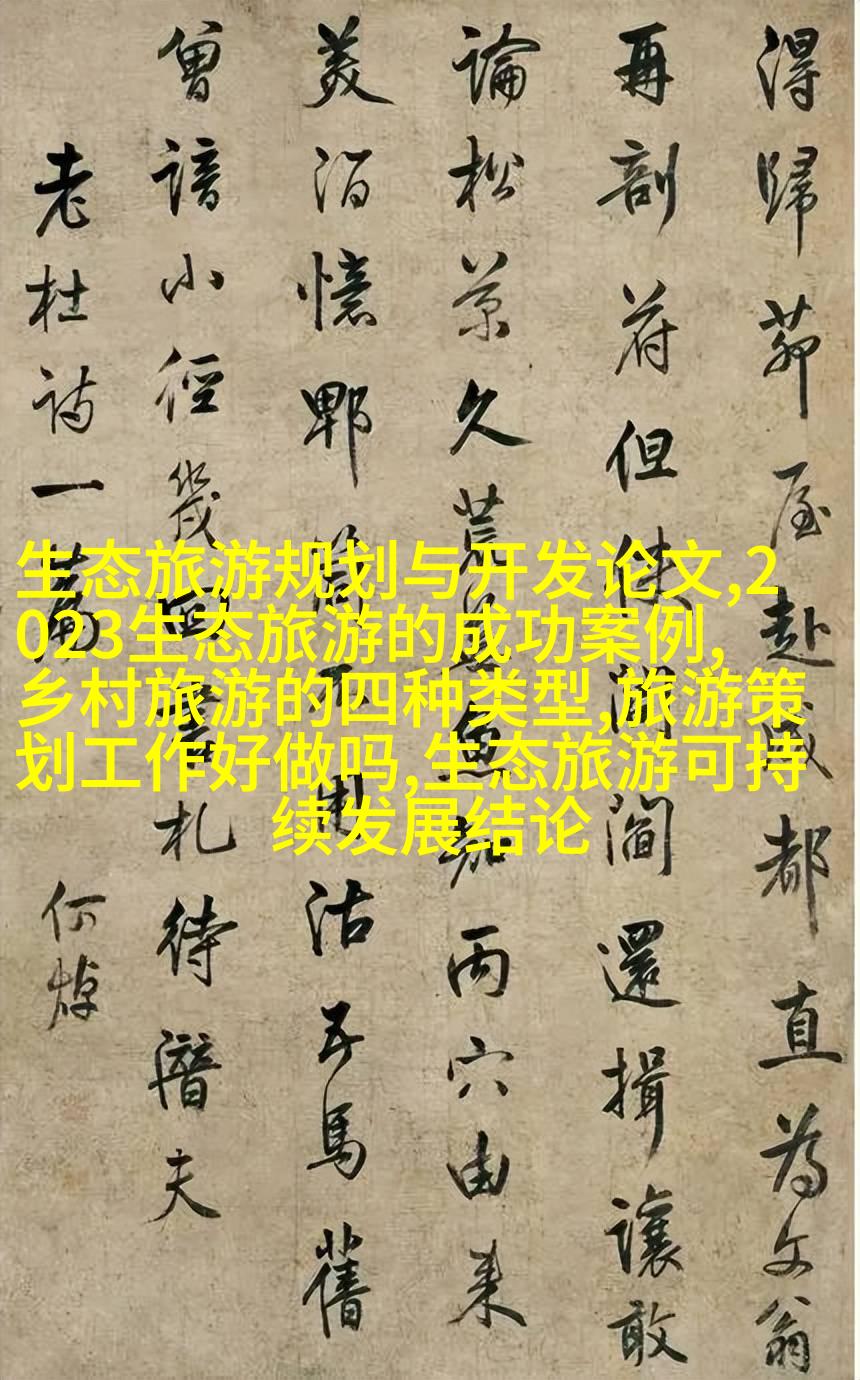 得歸茆屋赴成都直為文翁
再剖苻但使閭閻還揖讓敢
論松久荒蕪魚知丙穴由来
美酒憶郫筒不用沽五馬舊
曾諳小徑幾回書札待潛夫
老杜詩一篇
何焯
生态旅游规划与开发论文,2
023生态旅游的成功案例,
乡村旅游的四种类型,旅游策
划工作好做吗,生态旅游可持
续发展结论